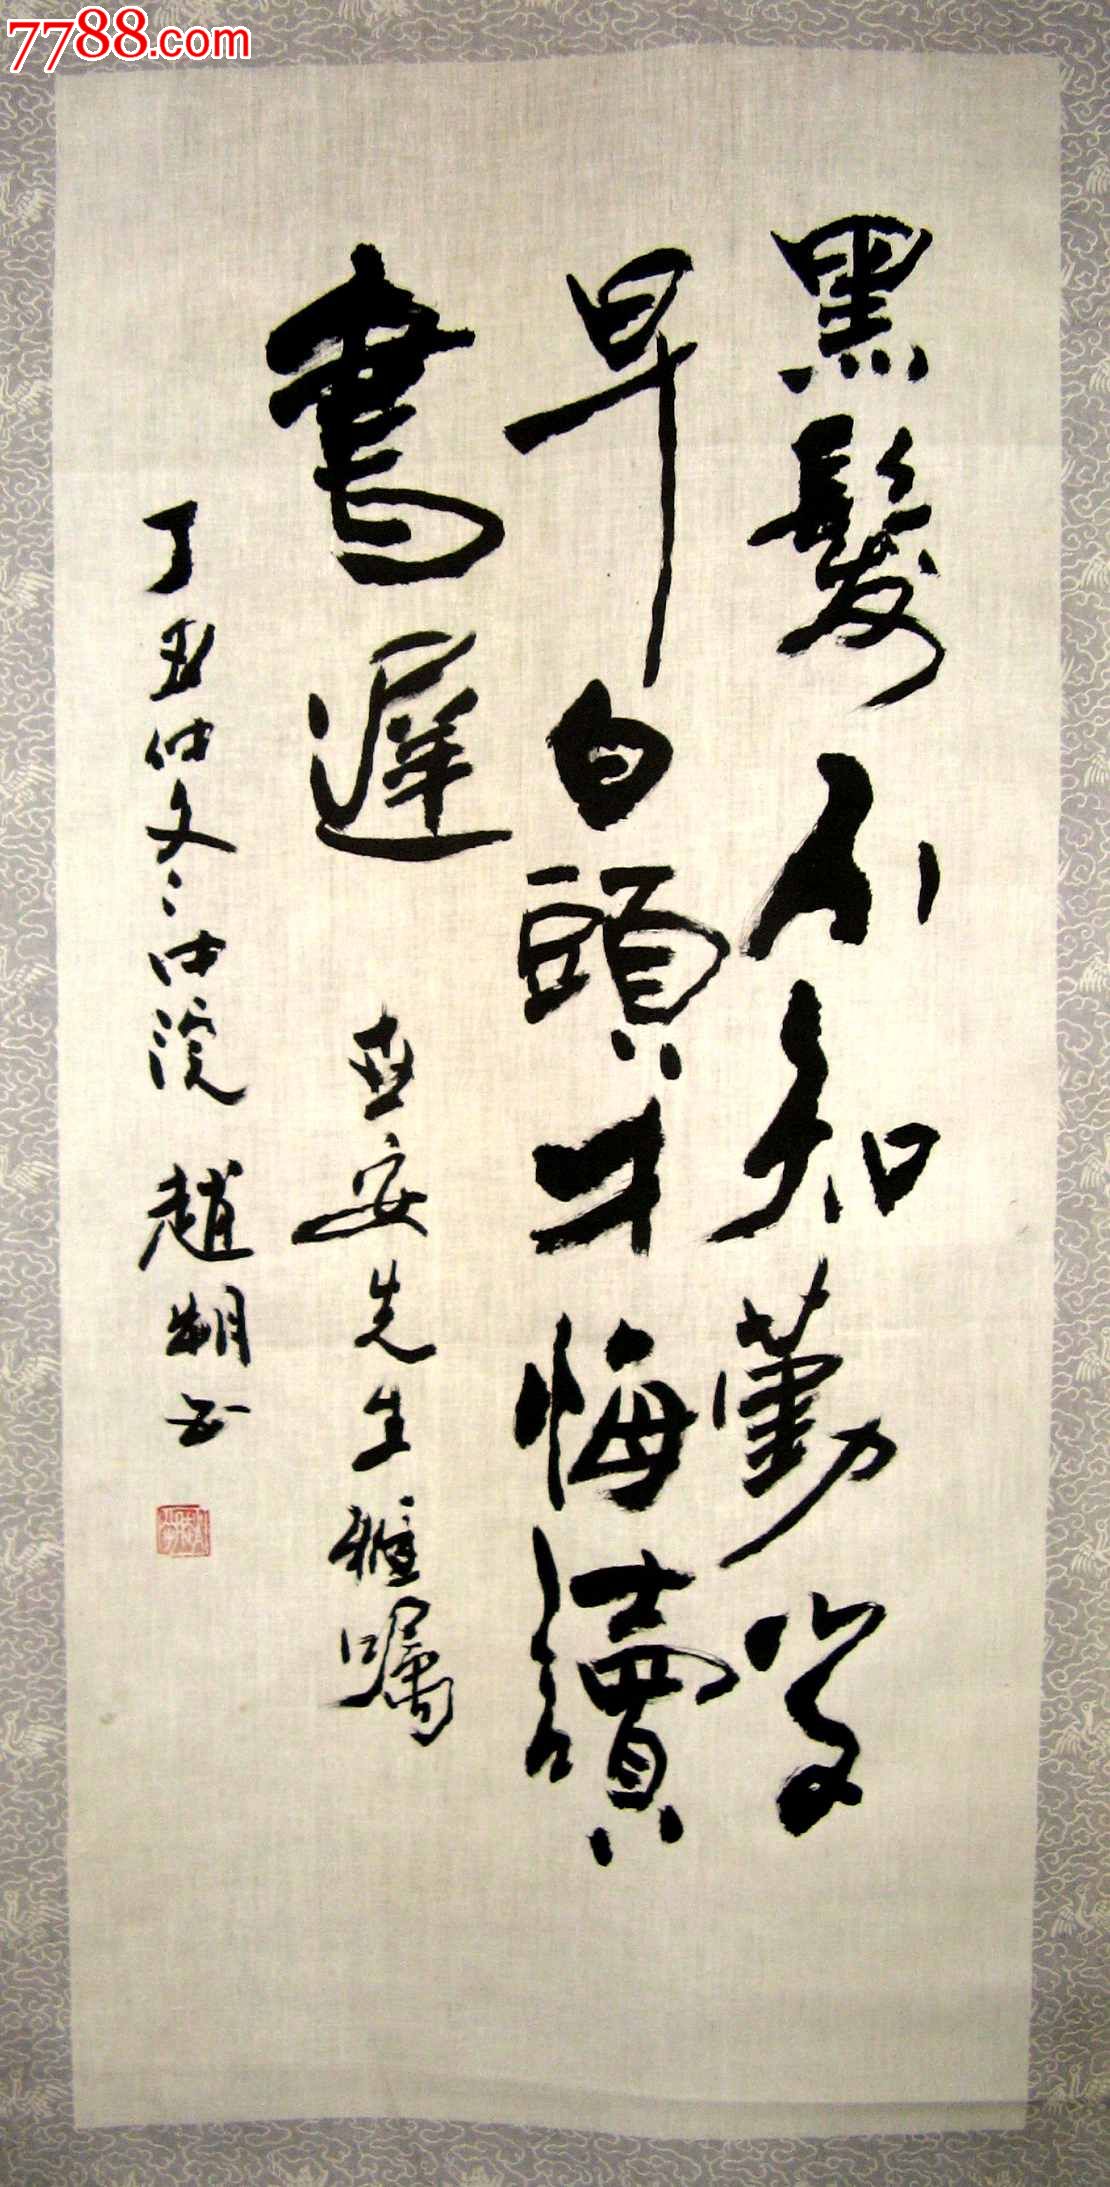 7788.com
黑髮不知勤學
早白頭才悔讀
書遲
亞安先生雅嘱
丁丑仲冬
趙朝书